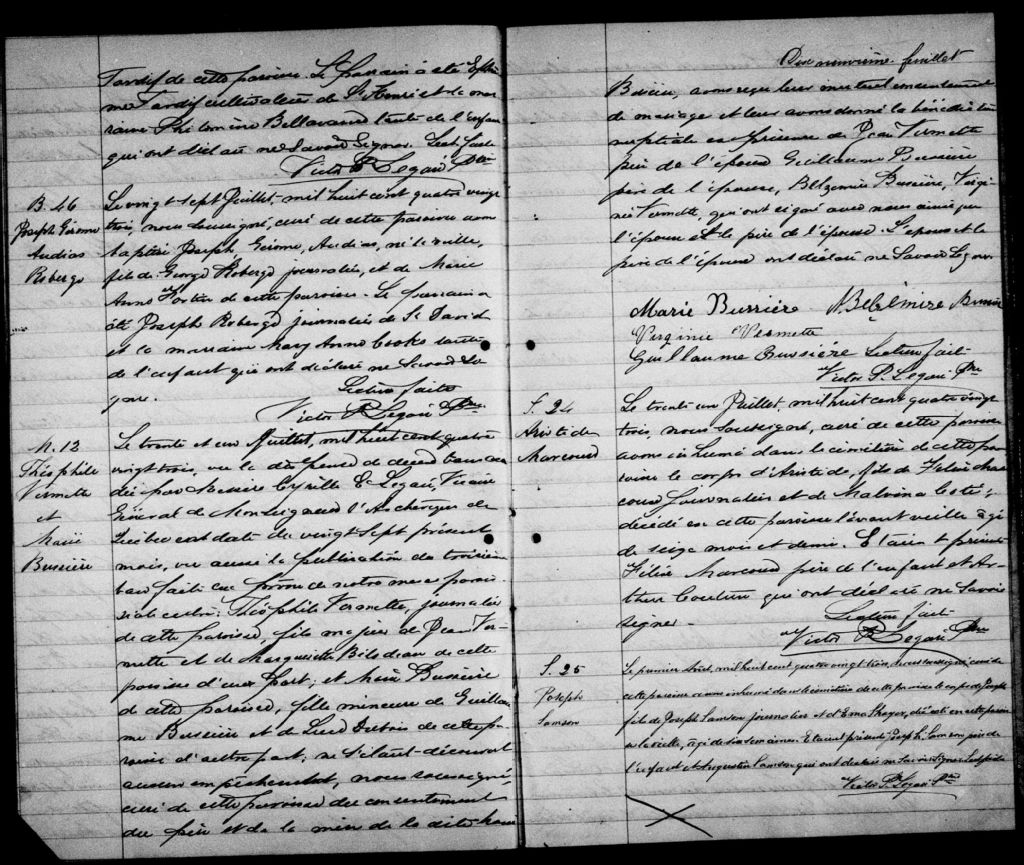 Tardif de cette paroisse. Le parrain a été
me Tardif cultivateur de St Henri et la mar
raine Philomène Bellavance tante de l'enfant
qui ont déclaré ne savoir signer. Lect. faite
Victor P. Legaré Ptre
B. 46
Joseph Gérome
Audias
Roberge
Le vingt sept Juillet, mil huit cent quatre vingt
trois, nous soussigné, curé de cette paroisse avons
baptisé Joseph, Gérome, Audias, né la veille,
fils de George Roberge journalier, et de Marie
Anne Fortier de cette paroisse. Le parrain a
été Joseph Roberge journalier de St David
et la marraine Mary Anne Cooke tante
de l'enfant qui ont déclaré ne savoir si
gner.
Lecture faite
Victor P. Legaré Ptre
M. 12
Théophile
Vermette
et
Marie
Bussière
Le trente et un Juillet, mil huit cent quatre
vingt trois, vu la dispense de deux bans
par Messire Cyrille E. Legaré, Vicaire
Général de Monseigneur l'Archevêque de
Québec en date du vingt sept présent
mois, vu aussi la publication du troisième
ban faite au prône de notre messe parois
siale entre Théophile Vermette, journalier
de cette paroisse, fils majeur de Jean Ver
mette et de Marguerite Bilodeau de cette
paroisse d'une part; et Marie Bussière
de cette paroisse, fille mineure de Guillau
me Bussière et de de cette pa
roisse d'autre part; ne s'étant découvert
aucun empêchement, nous soussigné,
curé de cette paroisse du consentement
du père et de la mère de la dite Marie
Dix neuvième feuillet
Bussière, avons reçu leur mutuel consentement
de mariage et leur avons donné la bénédiction
nuptiale en présence de Jean Vermette
père de l'époux Guillaume Bussière
père de l'épouse, Belzemire Bussière, Virgi
nie Vermette, qui ont signé avec nous ainsi que
l'épouse et le père de l'épouse. L'époux et le
père de l'époux ont déclaré ne savoir signer
Marie Bussière Belzémire Bussière
Virginie Vermette
Guillaume Bussière Lecture faite
Victor P. Legaré Ptre
S. 24
Aristide
Marcoux
Le trente un Juillet, mil huit cent quatre vingt
trois, nous soussigné, curé de cette paroisse
avons inhumé dans le cimetière de cette pa
roisse le corps d'Aristide, fils de Félix Mar
coux journalier et de Malvina
décédé en cette paroisse l'avant veille âgé
de seize mois et demi. Étaient présents
Félix Marcoux père de l'enfant et Ar
thur Couture qui ont déclaré ne savoir
signer -
Lecture faite
Victor P. Legaré Ptre
S. 25
Joseph
Samson
Le premier Août, mil huit cent quatre vingt trois, nous soussigné curé de
cette paroisse avons inhumé dans le cimetière de cette paroisse le corps de Joseph
fils de Joseph Samson journalier et d'Ema décédé en cette paroisse
la veille, âgé de six semaines. Étaient présents Joseph Samson père de
l'enfant et Augustin Samson qui ont déclaré ne savoir signer. Lect. faite
Victor P. Legaré Ptre